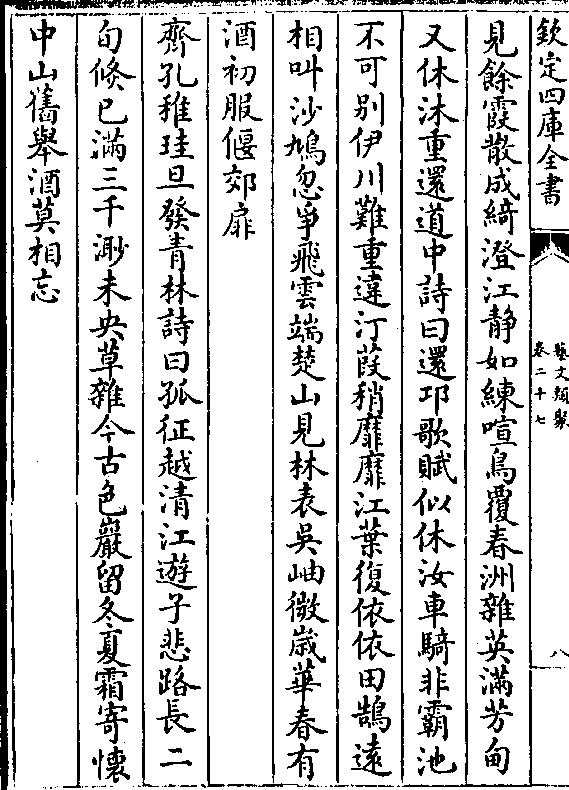 欽定四庫全書
藝文類聚
卷二十七
八
見餘霞散成綺澄江静如練喧鳥覆春洲雜英滿芳甸
又休沐重還道中詩曰還邛歌賦似休汝車騎非霸池
不可别伊川難重違汀葭稍靡靡江葉復依依田鵠遠
相叫沙鴇忽爭飛雲端楚山見林表吳岫微嵗華春有
酒初服偃郊扉
齊孔稚珪旦發青林詩曰孤征越清江遊子悲路長二
旬倐已滿三千渺未央草雜今古色巖留冬夏霜寄懷
中山舊舉酒莫相忘